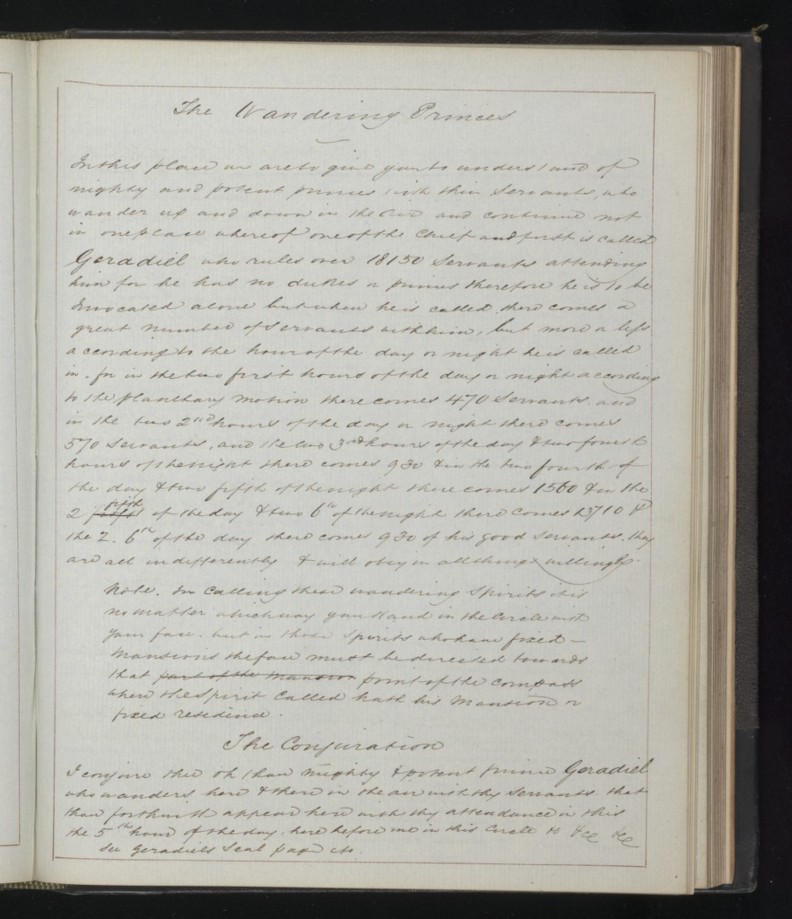 The Wandering Princes
In this place we are to give you to understand of
mighty and potent princes with their Servants, who
wander up and down in the Air and continue not
in one place whereof one of the Chief and first is called
Geradiel who rules over 18150 Servants attending
him for he has no dukes or princes therefore he is to be
Invocated alone but when he is called there comes a
great number of Servants with him, but more or less
according to the hour of the day or night he is called
in. for in the two first hours of the day or night according
to the planetary motion there comes 470 Servants and
in the two 2nd hours of the day or night there comes
570 Servants, and the two 3rd hours of the day & two fourth
hours of the night there comes 930 & in the two fourth of
the day & two fifth of the night there comes 1560 & in the
2 fifth of the day & two 6th of the night there comes 13710 &
the 2. 6th of the day there comes 930 of his good servants. they
are all indifferently & will obey in all things willingly.
Note. In calling these wandering Spirits it is
no matter which way you stand in the Circle with
your face. but in those Spirits who have fixed –
Mansions the face must be directed towards
that part of the mansion point of the compass
where the Spirit called hath his Mansion or
fixed residence.
The Conjuration
I conjure thee oh thou mighty & potent prince Geradiel
who wanders here & there in the air with thy servants. that
thou forthwith appear here with thy attendance in this
the 5th hour of the day, here before me in this Circle &c &c
See Geradiels Seal page